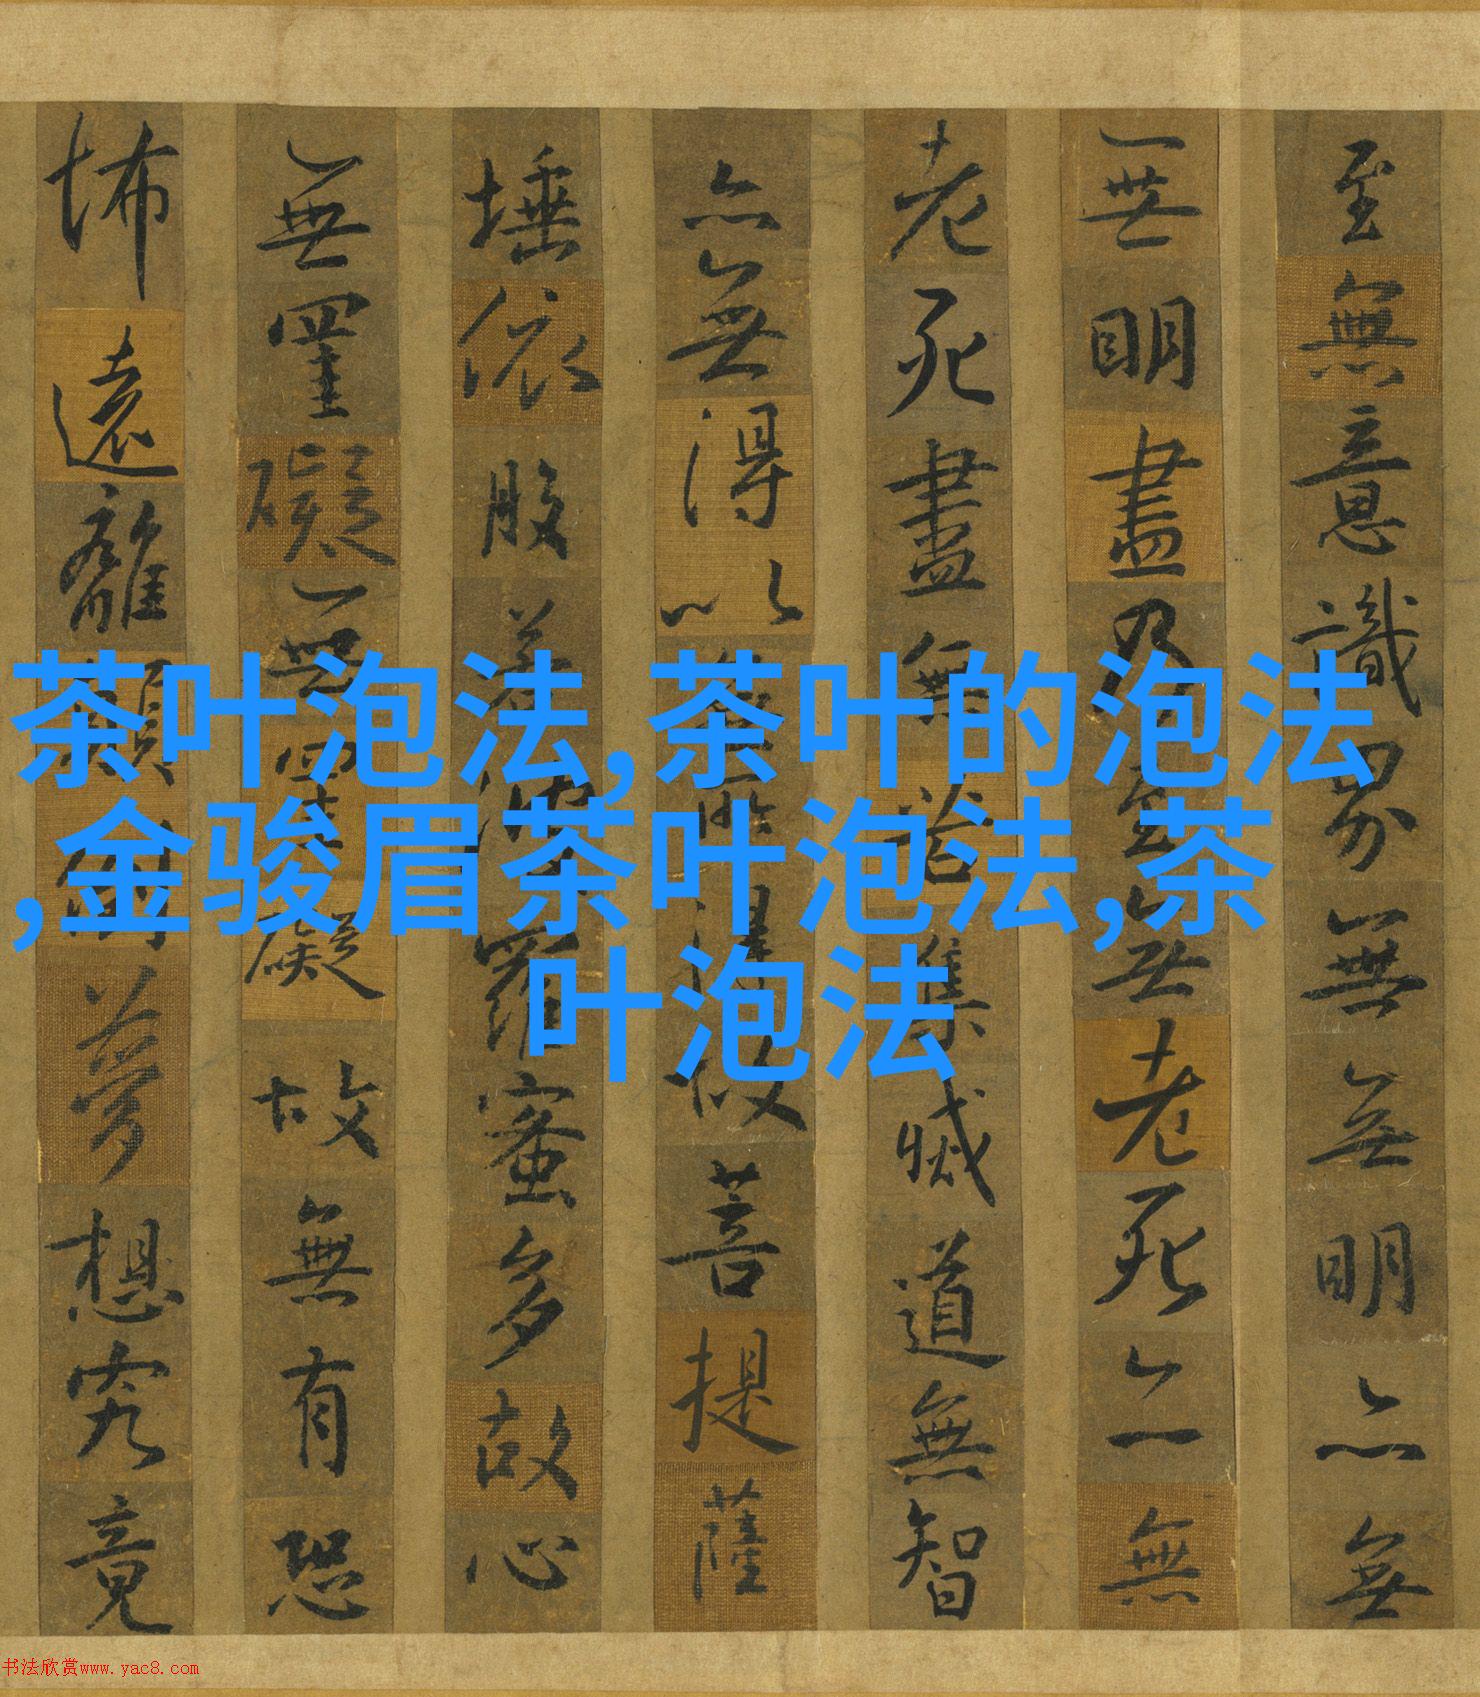 至無意識界無無明亦無
無明盡乃至無老死亦無
老死盡無苦集滅道無智
亦無得以無所得故菩提薩
埵依般若波羅蜜多故心
無罣礙無罣礙故無有恐
怖遠離顛倒夢想究竟
茶叶泡法,茶叶的泡法
,金骏眉茶叶泡法,茶
叶泡法
书法欣赏www.yac8.com